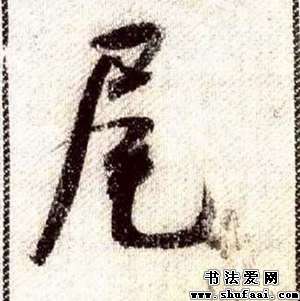 尾
书法爱网
www.shufaai.com